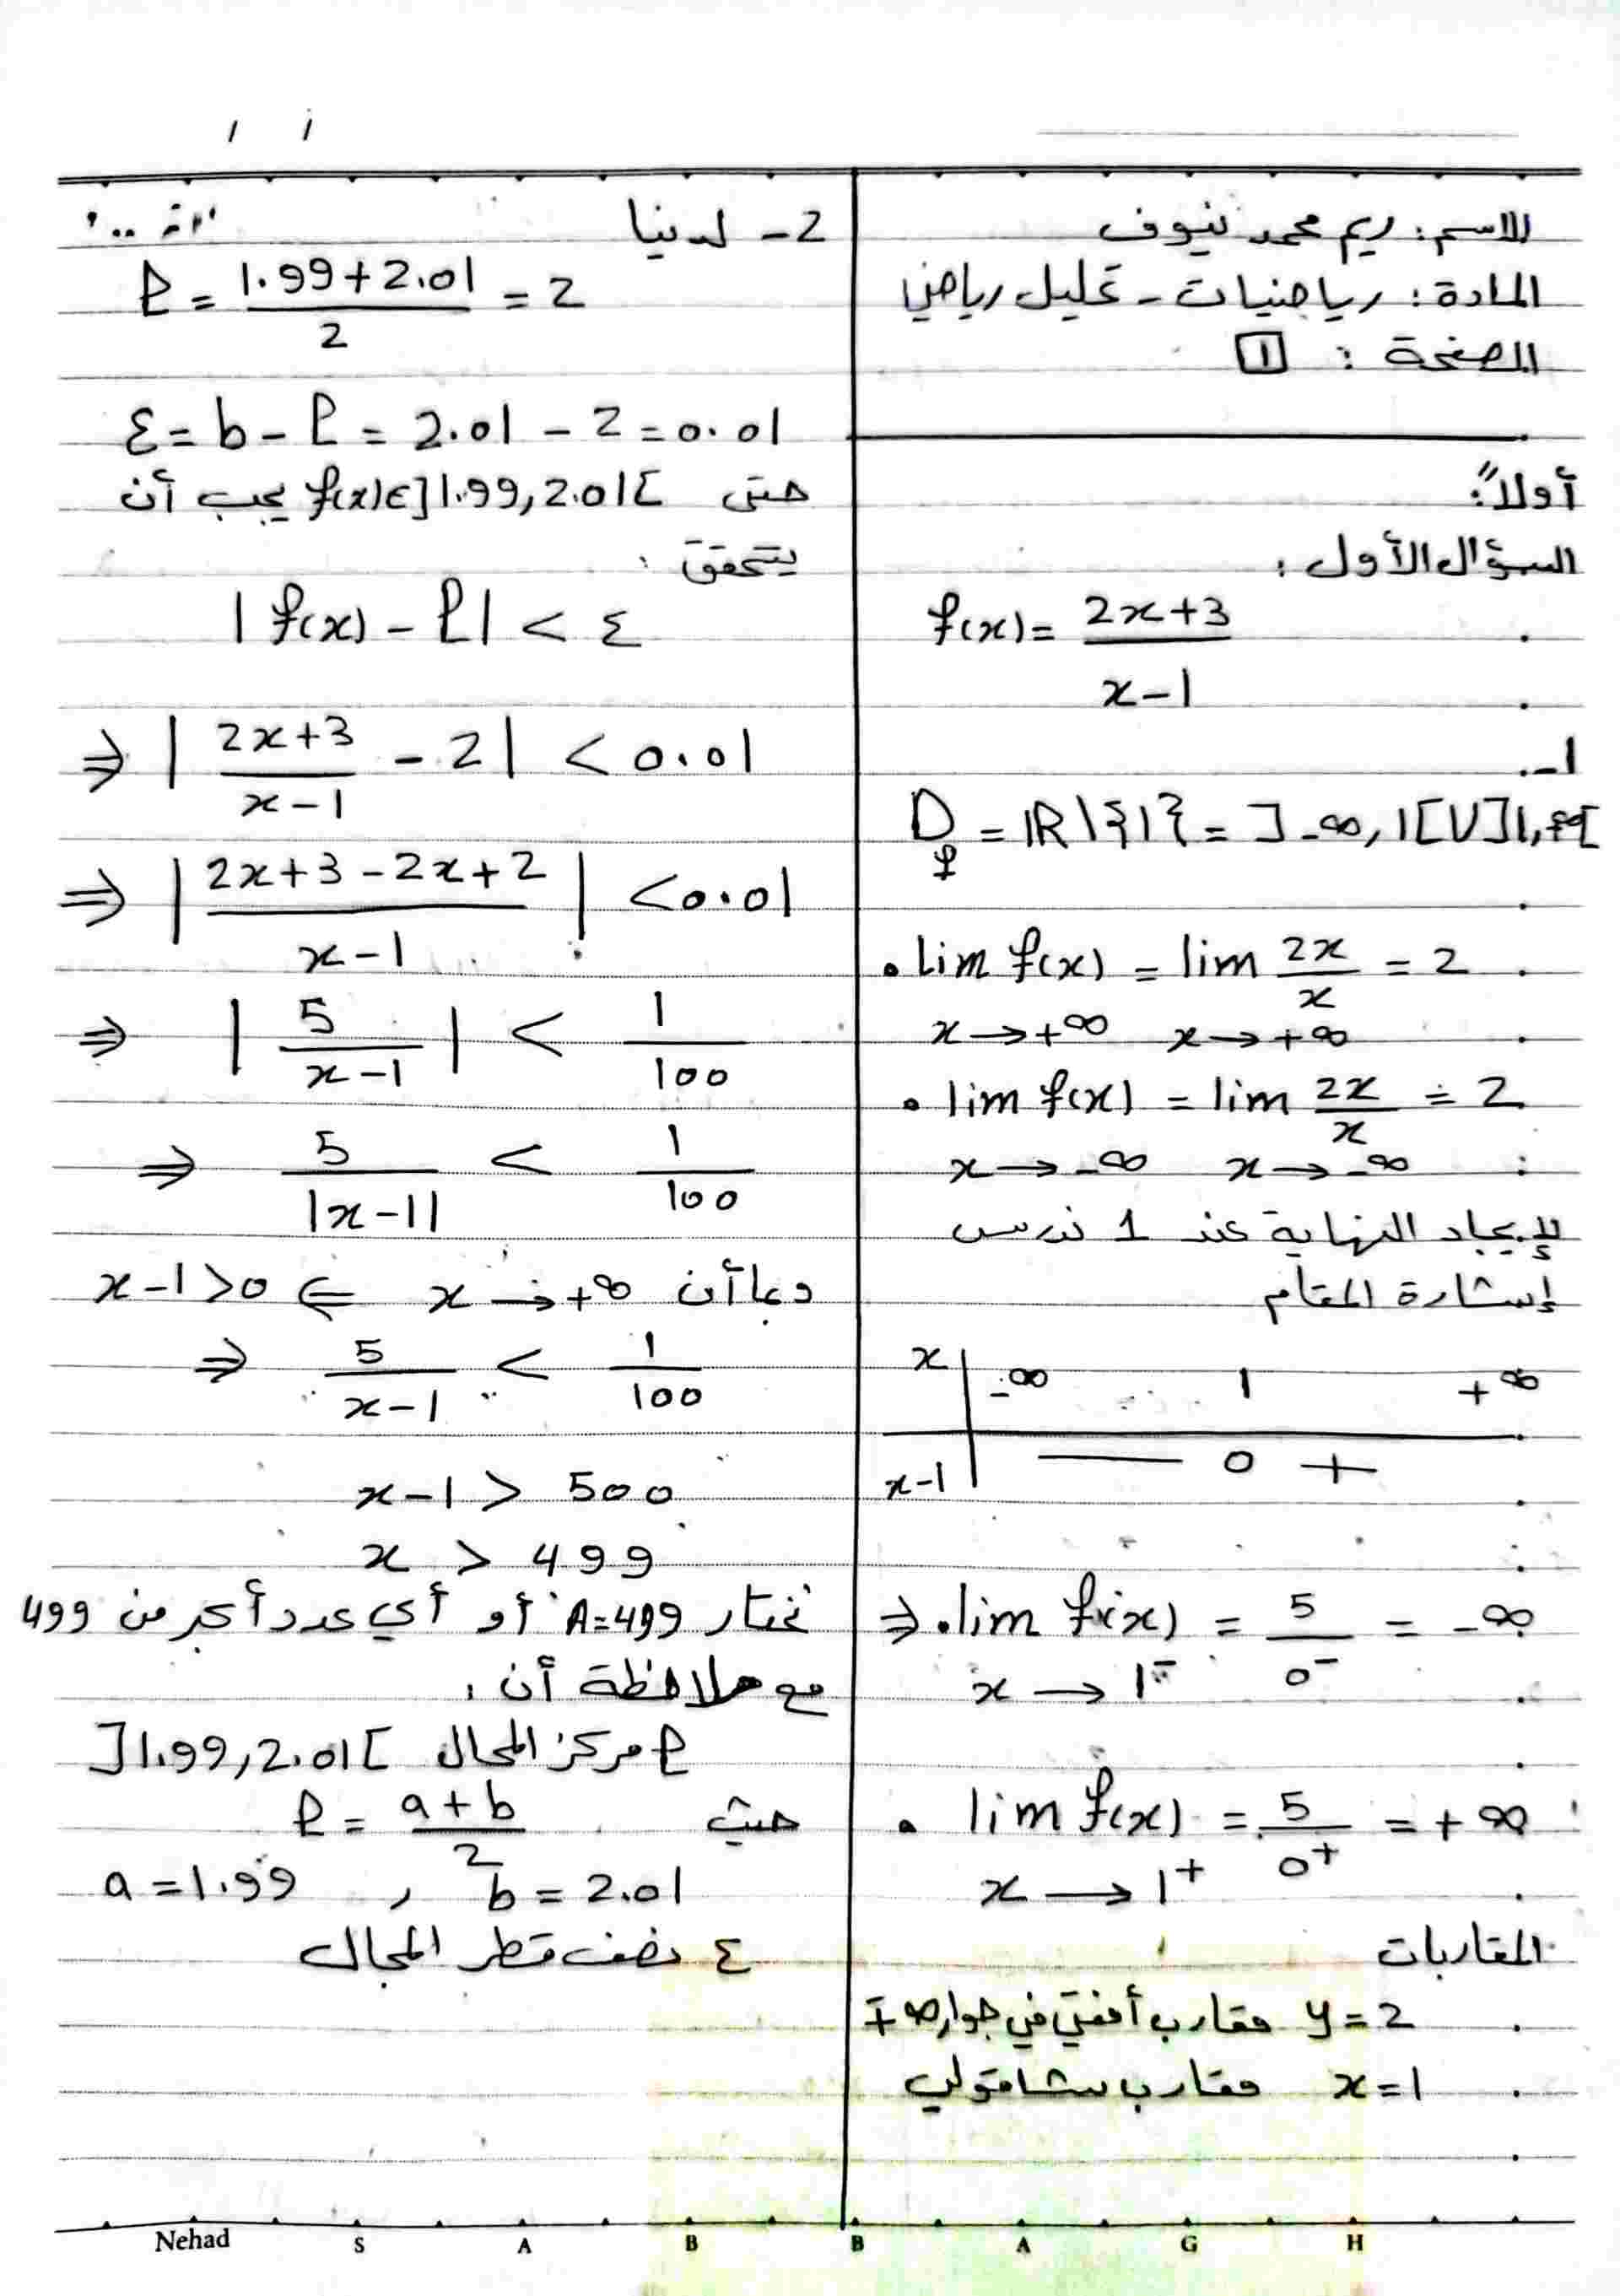 الاسم: ريم محمد نيوف
المادة: رياضيات - تحليل رياضي
الصفحة: 1
أولاً:
السؤال الأول:
f(x) = \frac{2x+3}{x-1}
1-
D_f = ℝ\{1} = ]-∞, 1[ ∪ ]1, +∞[
• lim f(x) = lim \frac{2x}{x} = 2
x → +∞ x → +∞
• lim f(x) = lim \frac{2x}{x} = 2
x → -∞ x → -∞
لإيجاد النهاية عند 1 ندرس
إشارة المقام
x | -∞ 1 +∞
x-1 | — 0 +
⇒ • lim f(x) = \frac{5}{0^-} = -∞
x → 1^-
• lim f(x) = \frac{5}{0^+} = +∞
x → 1^+
المقاربات
y = 2 مقارب أفقي في جوار ∓∞
x = 1 مقارب شاقولي
2- لدينا
ℓ = \frac{1.99+2.01}{2} = 2
ε = b - ℓ = 2.01 - 2 = 0.01
حتى f(x) ∈ ]1.99, 2.01[ يجب أن
يتحقق:
|f(x) - ℓ| < ε
⇒ |\frac{2x+3}{x-1} - 2| < 0.01
⇒ |\frac{2x+3-2x+2}{x-1}| < 0.01
⇒ |\frac{5}{x-1}| < \frac{1}{100}
⇒ \frac{5}{|x-1|} < \frac{1}{100}
وبما أن x → +∞ ⇐ x-1 > 0
⇒ \frac{5}{x-1} < \frac{1}{100}
x-1 > 500
x > 499
نختار A = 499 أو أي عدد أكبر من 499
مع ملاحظة أن:
ℓ مركز المجال ]1.99, 2.01[
حيث ℓ = \frac{a+b}{2}
a = 1.99 , b = 2.01
ε نصف قطر المجال
Nehad S A B B A G H